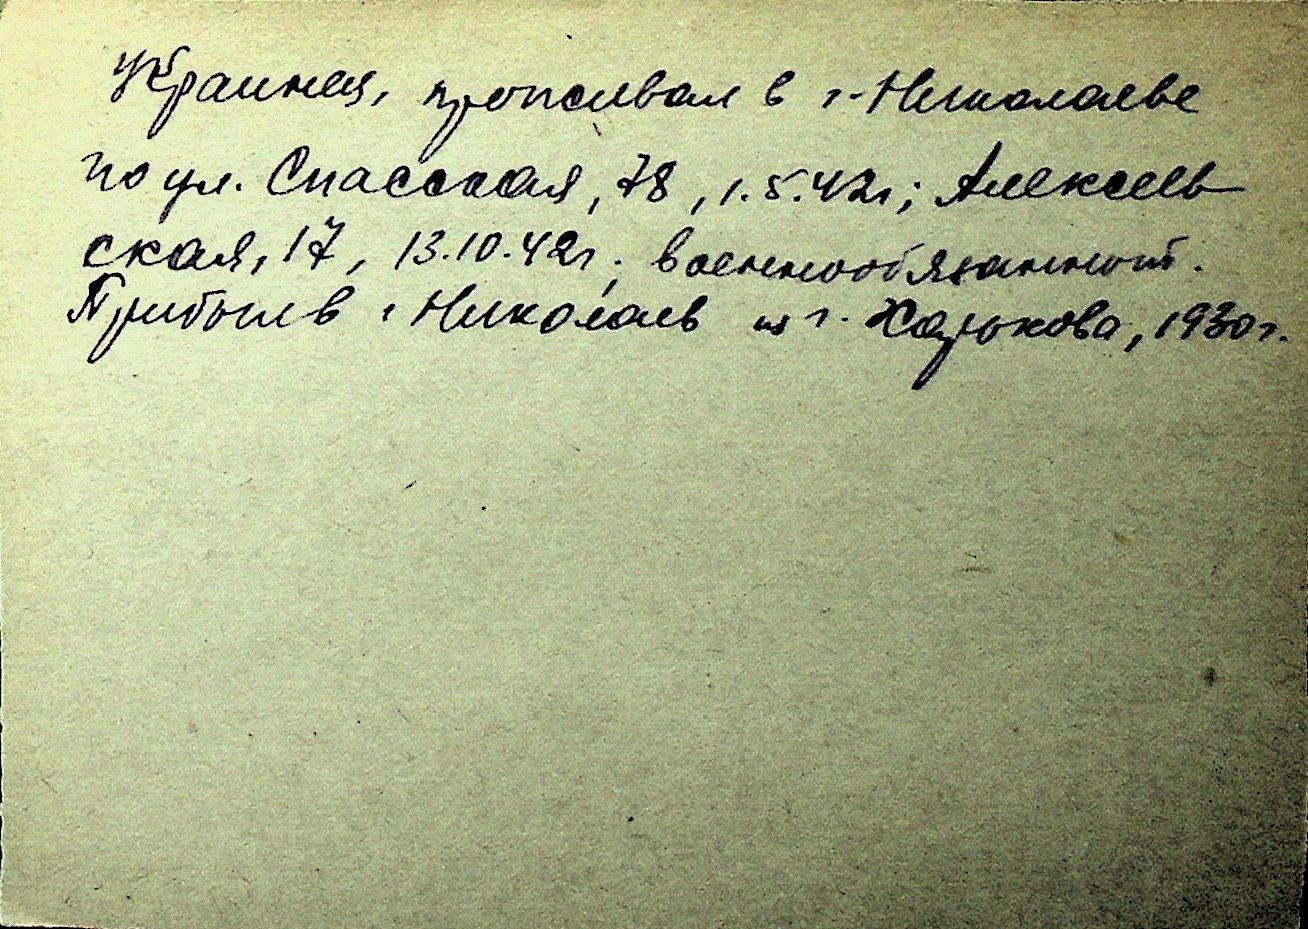 Украинец, проживал в г. Николаеве
по ул. Спасская, 78, 1.5.42г; Алексеев
ская, 17, 13.10.42г. военнообязанный.
Прибыл в г Николаев из г. Харькова, 1930г.